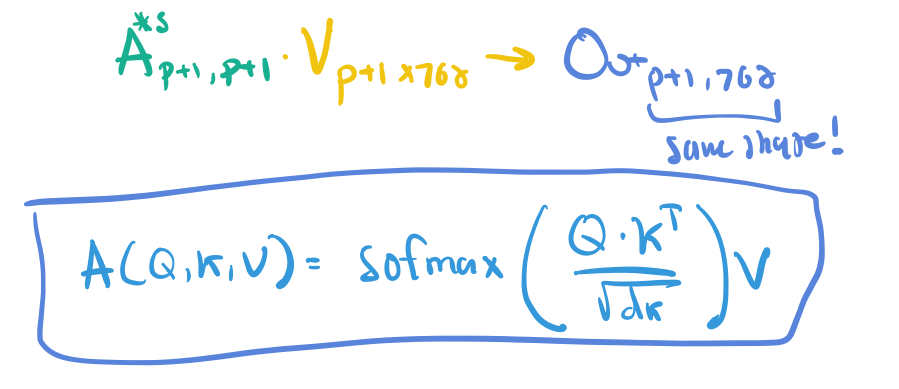 A*s p+1,p+1 · V p+1x768 → Out p+1,768
same shape!
A(Q,K,V) = sofmax (Q·K^T / √dK) V